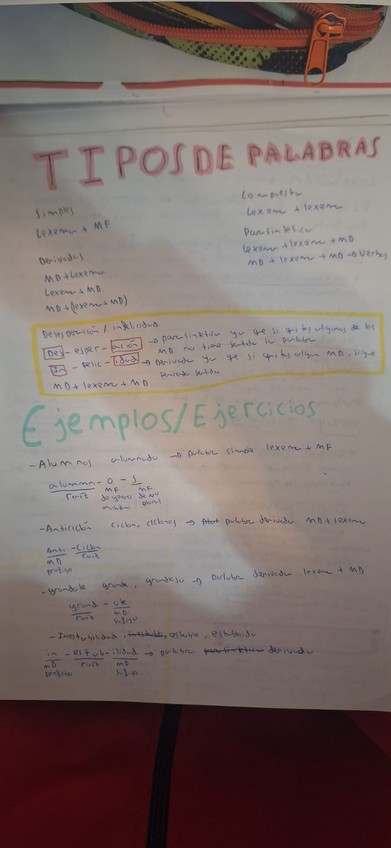 TIPOS DE PALABRAS
Simples
Lexema + MF
Derivadas
MD + Lexema
Lexema + MD
MD + (lexema + MD)
Compuesta
Lexema + lexema
Parasintética
Lexema + lexema + MD
MD + lexema + MD → verbos
Desesperación / infelicidad
Des - esper - ación → parasintética ya que si quitas algunos de los
MD no tiene sentido la palabra
In - felic - idad → Derivada ya que si quitas algun MD, sigue
teniendo sentido
MD + lexema + MD
Ejemplos/Ejercicios
- Alumnos alumnado → palabra simple lexema + MF
alumn - o - s
raíz MF MF
de género de nº
plural
- Anticiclón ciclón, ciclones → palabra derivada MD + lexema
Anti - ciclón
MD raíz
prefijo
- grandote grande, → palabra derivada lexema + MD
grand - ote
raíz MD
sufijo
- Inestabilidad, estable, estabilidad
in - estab - ilidad → palabra derivada
MD raíz MD
prefijo sufijo